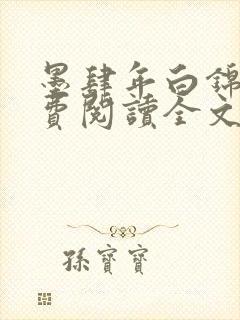 墨肆年白錦
費閱讀全文
孫寶寶